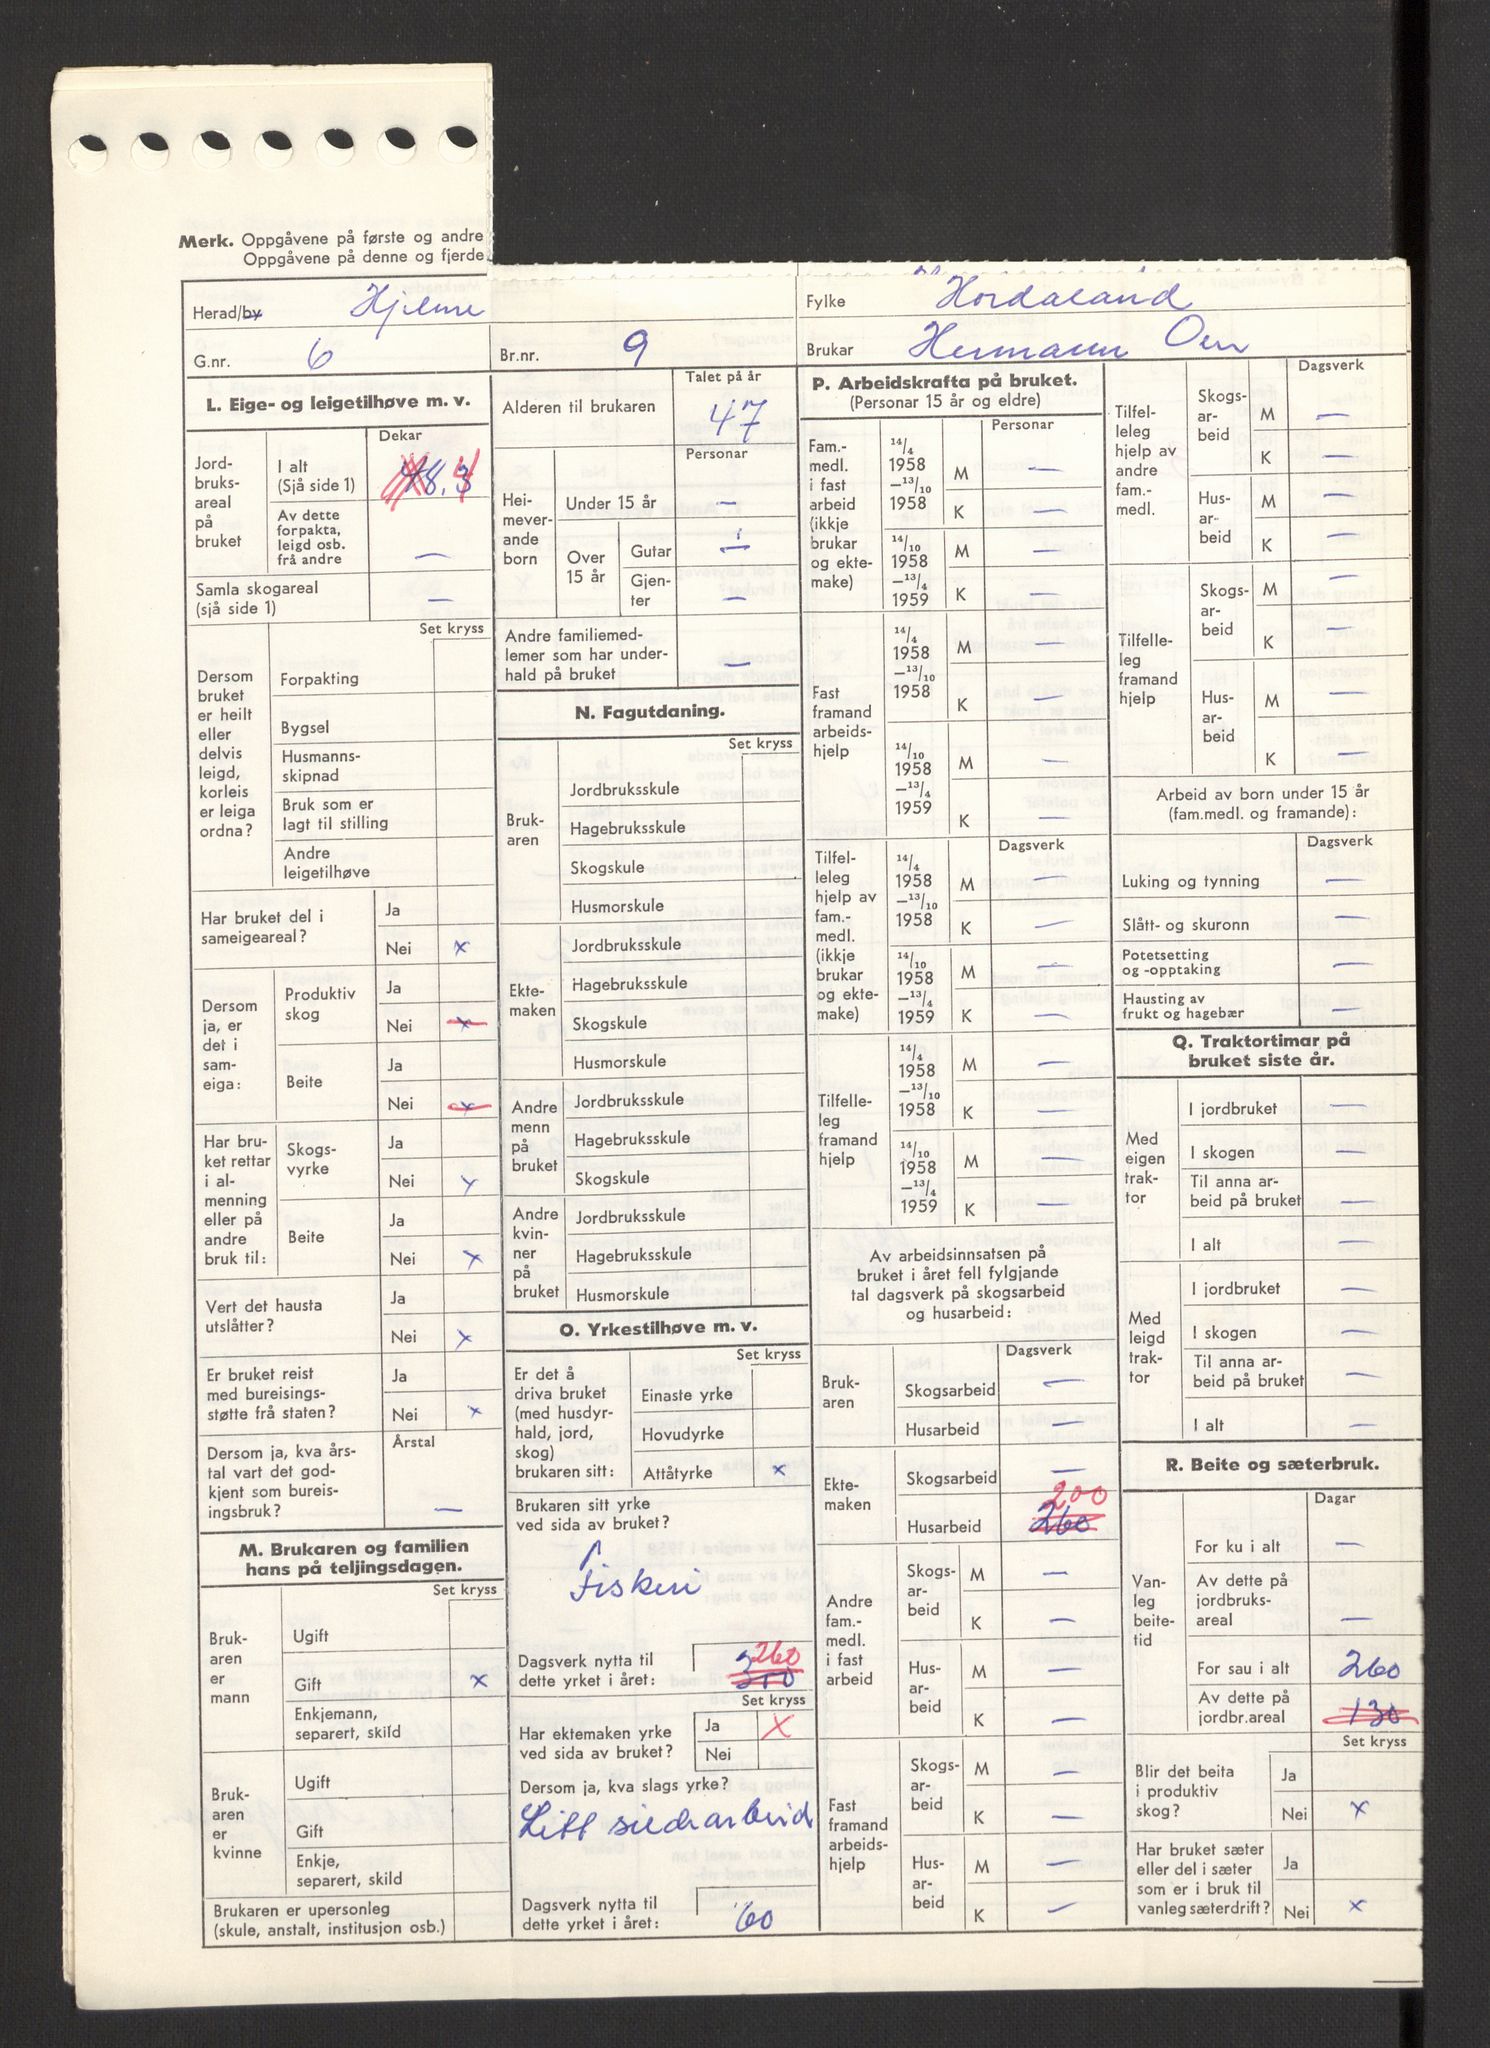 Merk. Oppgåvene på første og andre
Oppgåvene på denne og fjerde
Herad/by Hjelme
Fylke Hordaland
G.nr. 6
Br.nr. 9
Brukar Hermann Oen
L. Eige- og leigetilhøve m. v.
Dekar
Jord-
bruks-
areal
på
bruket
I alt
(Sjå side 1)
Av dette
forpakta,
leigd osb.
frå andre —
Samla skogareal
(sjå side 1) —
Set kryss
Dersom
bruket
er heilt
eller
delvis
leigd,
korleis
er leiga
ordna?
Forpakting
Bygsel
Husmanns-
skipnad
Bruk som er
lagt til stilling
Andre
leigetilhøve
Har bruket del i
sameigeareal?
Ja
Nei x
Dersom
ja, er
det i
sam-
eiga:
Produktiv
skog
Ja
Nei x
Beite
Ja
Nei x
Har bru-
ket rettar
i al-
menning
eller på
andre
bruk til:
Skogs-
vyrke
Ja
Nei x
Beite
Ja
Nei x
Vert det hausta
utslåtter?
Ja
Nei x
Er bruket reist
med bureisings-
støtte frå staten?
Ja
Nei x
Dersom ja, kva års-
tal vart det god-
kjent som bureis-
ingsbruk?
Årstal
—
M. Brukaren og familien
hans på teljingsdagen.
Set kryss
Bruk-
aren
er
mann
Ugift
Gift x
Enkjemann,
separert, skild
Bruk-
aren
er
kvinne
Ugift
Gift
Enkje,
separert, skild
Brukaren er upersonleg
(skule, anstalt, institusjon osb.)
Talet på år
Alderen til brukaren 47
Personar
Hei-
mever-
ande
born
Under 15 år —
Over
15 år
Gutar
Gjen-
ter —
Andre familiemed-
lemer som har under-
hald på bruket —
N. Fagutdaning.
Set kryss
Bruk-
aren
Jordbruksskule
Hagebruksskule
Skogskule
Husmorskule
Ekte-
maken
Jordbruksskule
Hagebruksskule
Skogskule
Husmorskule
Andre
menn
på
bruket
Jordbruksskule
Hagebruksskule
Skogskule
Andre
kvin-
ner
på
bruket
Jordbruksskule
Hagebruksskule
Husmorskule
O. Yrkestilhøve m. v.
Set kryss
Er det å
driva bruket
(med husdyr-
hald, jord,
skog)
brukaren sitt:
Einaste yrke
Hovudyrke
Attåtyrke x
Brukaren sitt yrke
ved sida av bruket?
Fiskeri
Dagsverk nytta til
dette yrket i året: 260
300
Set kryss
Har ektemaken yrke
ved sida av bruket?
Ja X
Nei
Dersom ja, kva slags yrke?
Litt sildarbeid
Dagsverk nytta til
dette yrket i året: 60
P. Arbeidskrafta på bruket.
(Personar 15 år og eldre)
Personar
Fam.-
medl.
i fast
arbeid
(ikkje
brukar
og ekte-
make)
14/4
1958
—13/10
1958
M —
K —
14/10
1958
—13/4
1959
M —
K —
Fast
framand
arbeids-
hjelp
14/4
1958
—13/10
1958
M —
K —
14/10
1958
—13/4
1959
M —
K —
Dagsverk
Tilfel-
leleg
hjelp av
fam.-
medl.
(ikkje
brukar
og ekte-
make)
14/4
1958
—13/10
1958
M —
K —
14/10
1958
—13/4
1959
M —
K —
Tilfelle-
leg
framand
hjelp
14/4
1958
—13/10
1958
M —
K —
14/10
1958
—13/4
1959
M —
K —
Av arbeidsinnsatsen på
bruket i året fell fylgjande
tal dagsverk på skogsarbeid
og husarbeid:
Dagsverk
Bruk-
aren
Skogsarbeid —
Husarbeid —
Ekte-
maken
Skogsarbeid —
200
Husarbeid 260
Andre
fam.-
medl.
i fast
arbeid
Skogs-
ar-
beid
M —
K —
Hus-
ar-
beid
M —
K —
Fast
framand
arbeids-
hjelp
Skogs-
ar-
beid
M —
K —
Hus-
ar-
beid
M —
K —
Dagsverk
Tilfel-
leleg
hjelp av
andre
fam.-
medl.
Skogs-
ar-
beid
M —
K —
Hus-
ar-
beid
M —
K —
Tilfelle-
leg
framand
hjelp
Skogs-
ar-
beid
M —
K —
Hus-
ar-
beid
M —
K —
Arbeid av born under 15 år
(fam.medl. og framande):
Dagsverk
Luking og tynning —
Slått- og skuronn —
Potetsetting
og -opptaking —
Hausting av
frukt og hagebær —
Q. Traktortimar på
bruket siste år.
Med
eigen
trak-
tor
I jordbruket —
I skogen —
Til anna ar-
beid på bruket —
I alt —
Med
leigd
trak-
tor
I jordbruket —
I skogen —
Til anna ar-
beid på bruket —
I alt —
R. Beite og sæterbruk.
Dagar
Van-
leg
beite-
tid
For ku i alt —
Av dette på
jordbruks-
areal —
For sau i alt 260
Av dette på
jordbr.areal 130
Set kryss
Blir det beita
i produktiv
skog?
Ja
Nei x
Har bruket sæter
eller del i sæter
som er i bruk til
vanleg sæterdrift?
Ja
Nei x